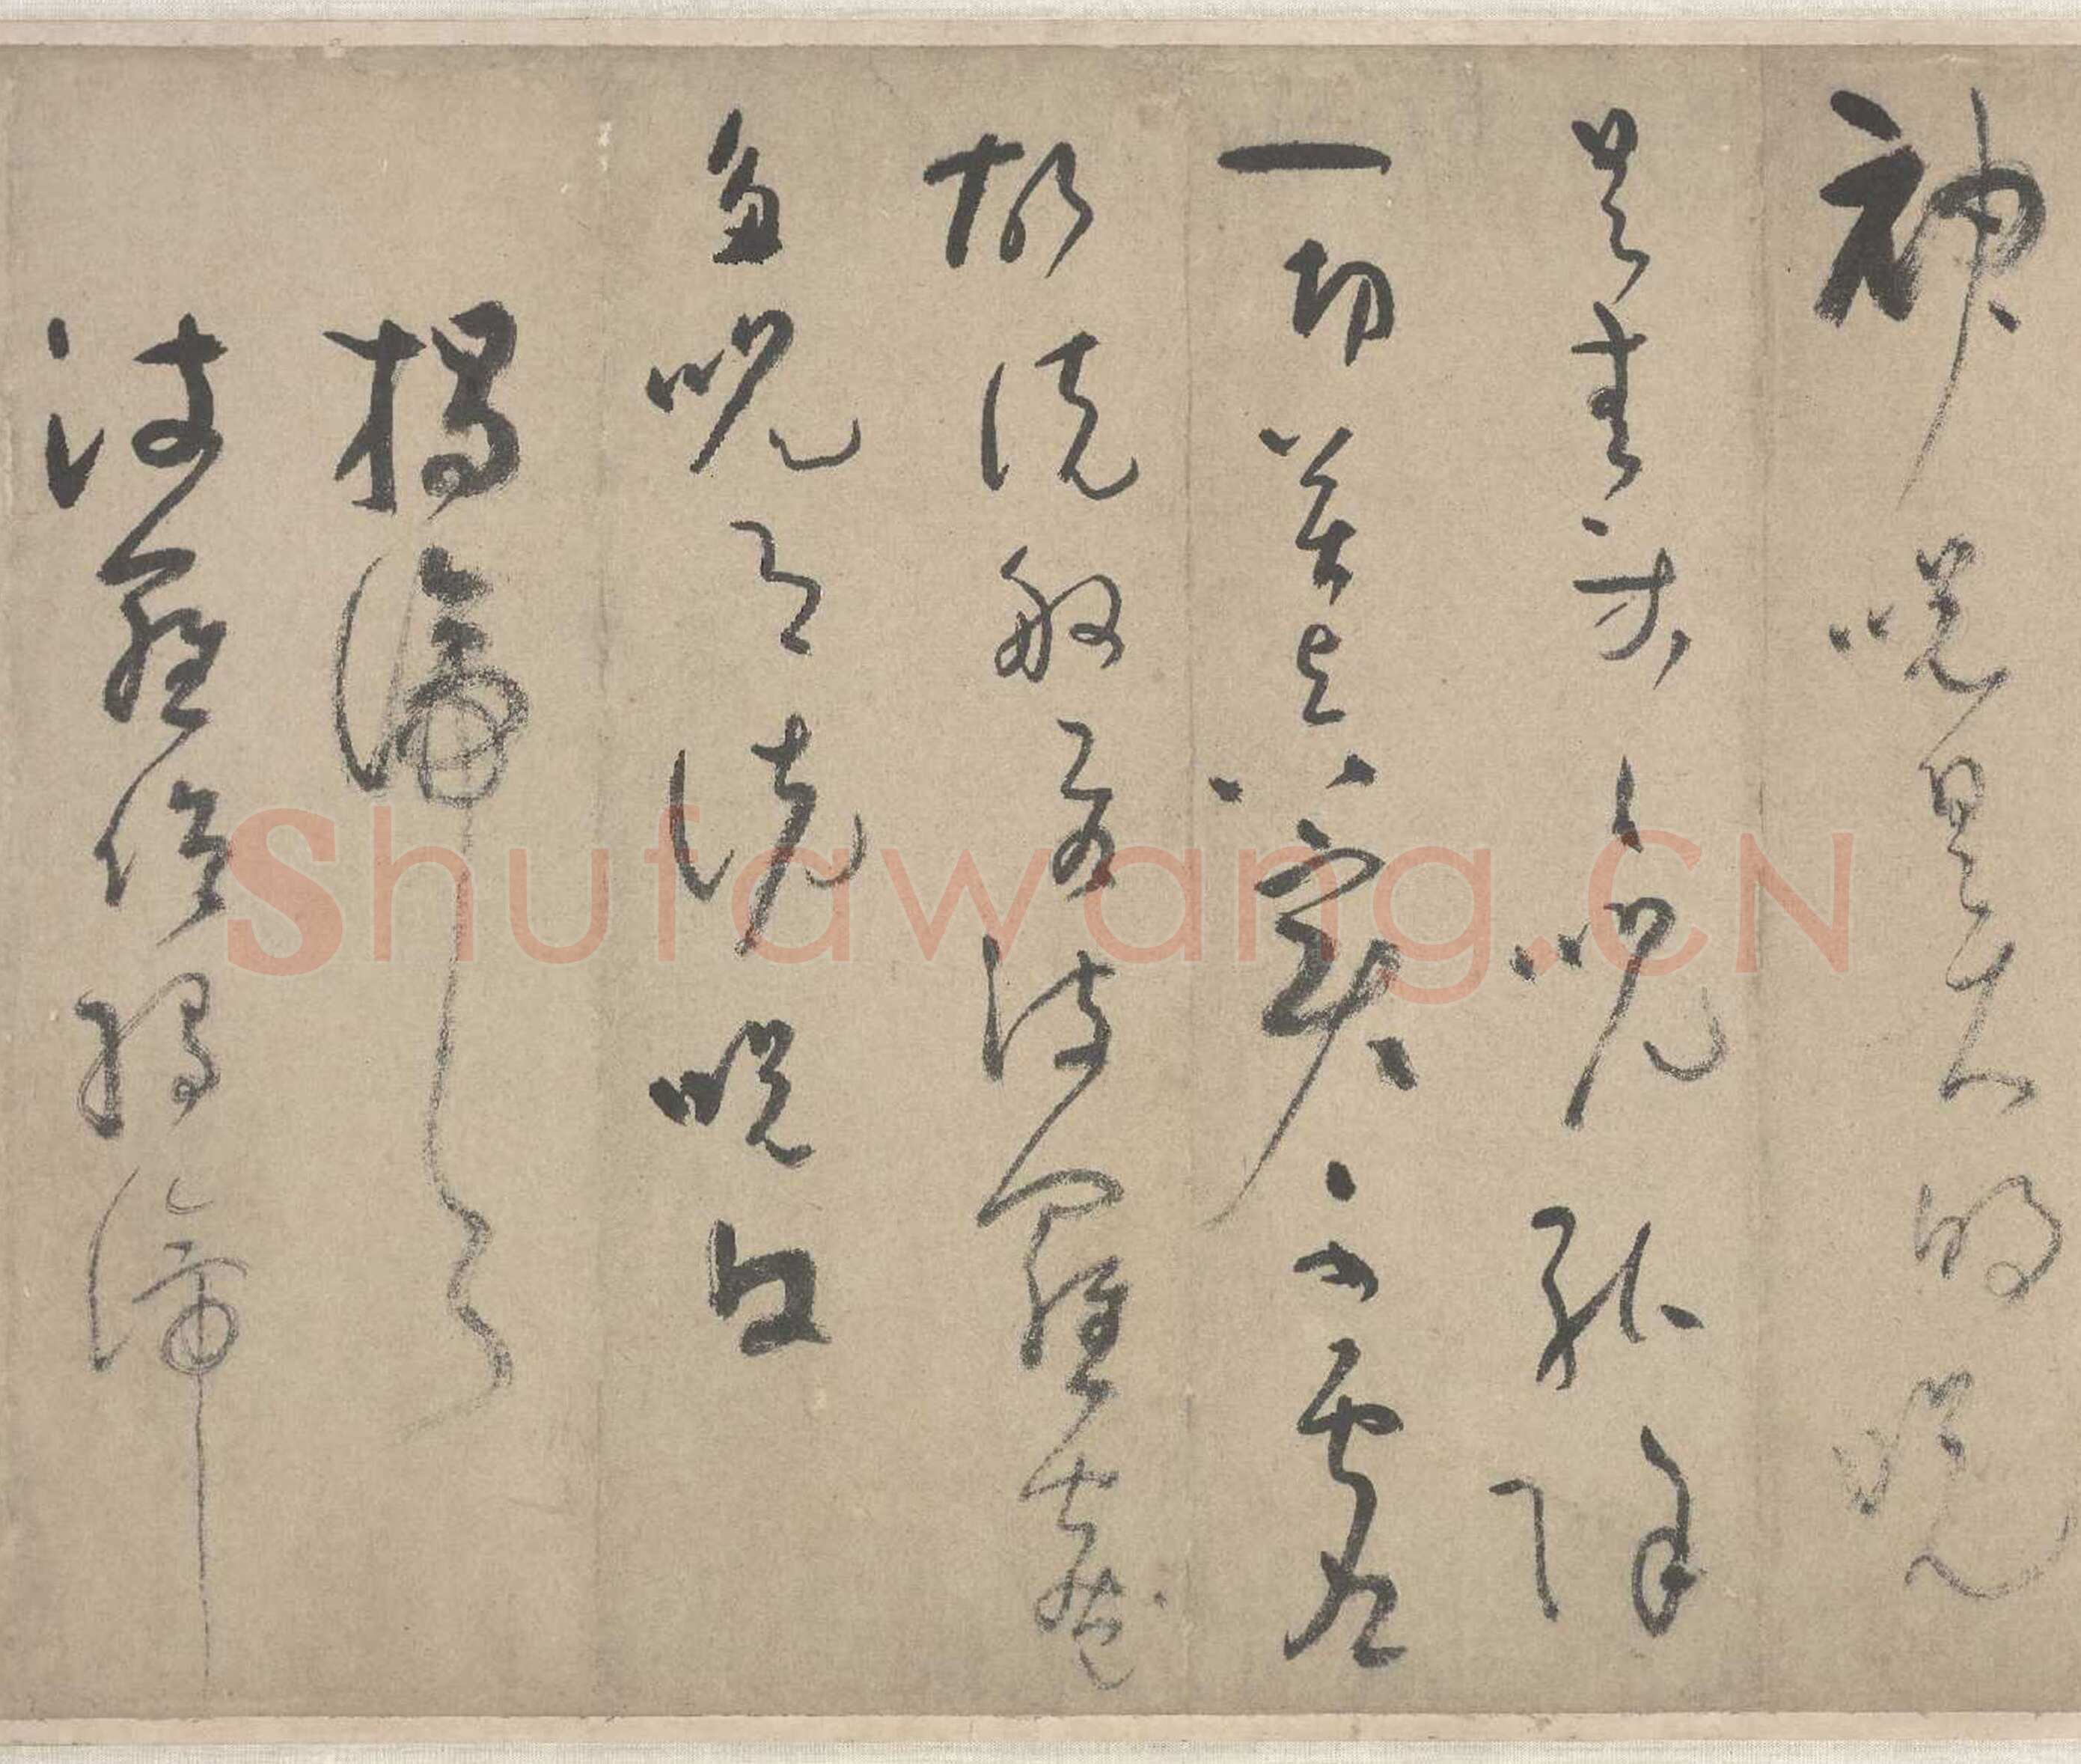 神咒是大明咒
是無等等咒能除
一切苦真實不虛
故說般若波羅蜜
多咒即說咒曰
揭諦〻〻
波羅僧揭諦
Shufawang.CN